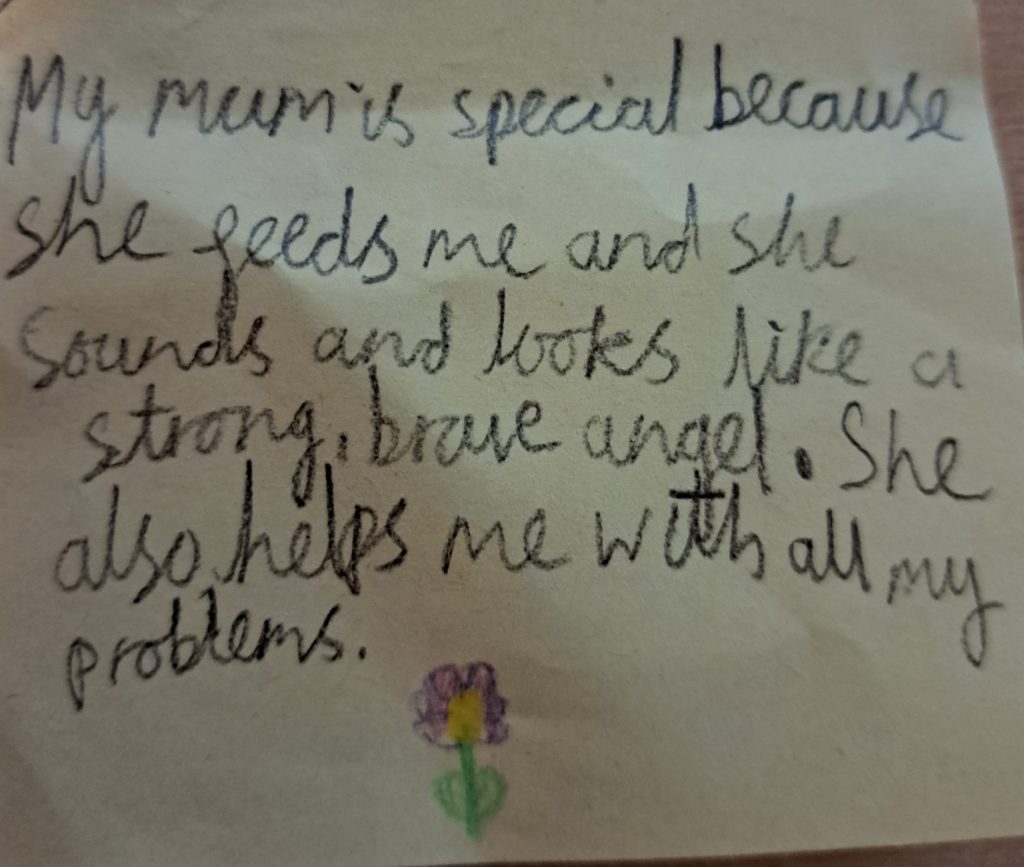 My mum is special because
she feeds me and she
sounds and looks like a
strong, brave angel. She
also helps me with all my
problems.